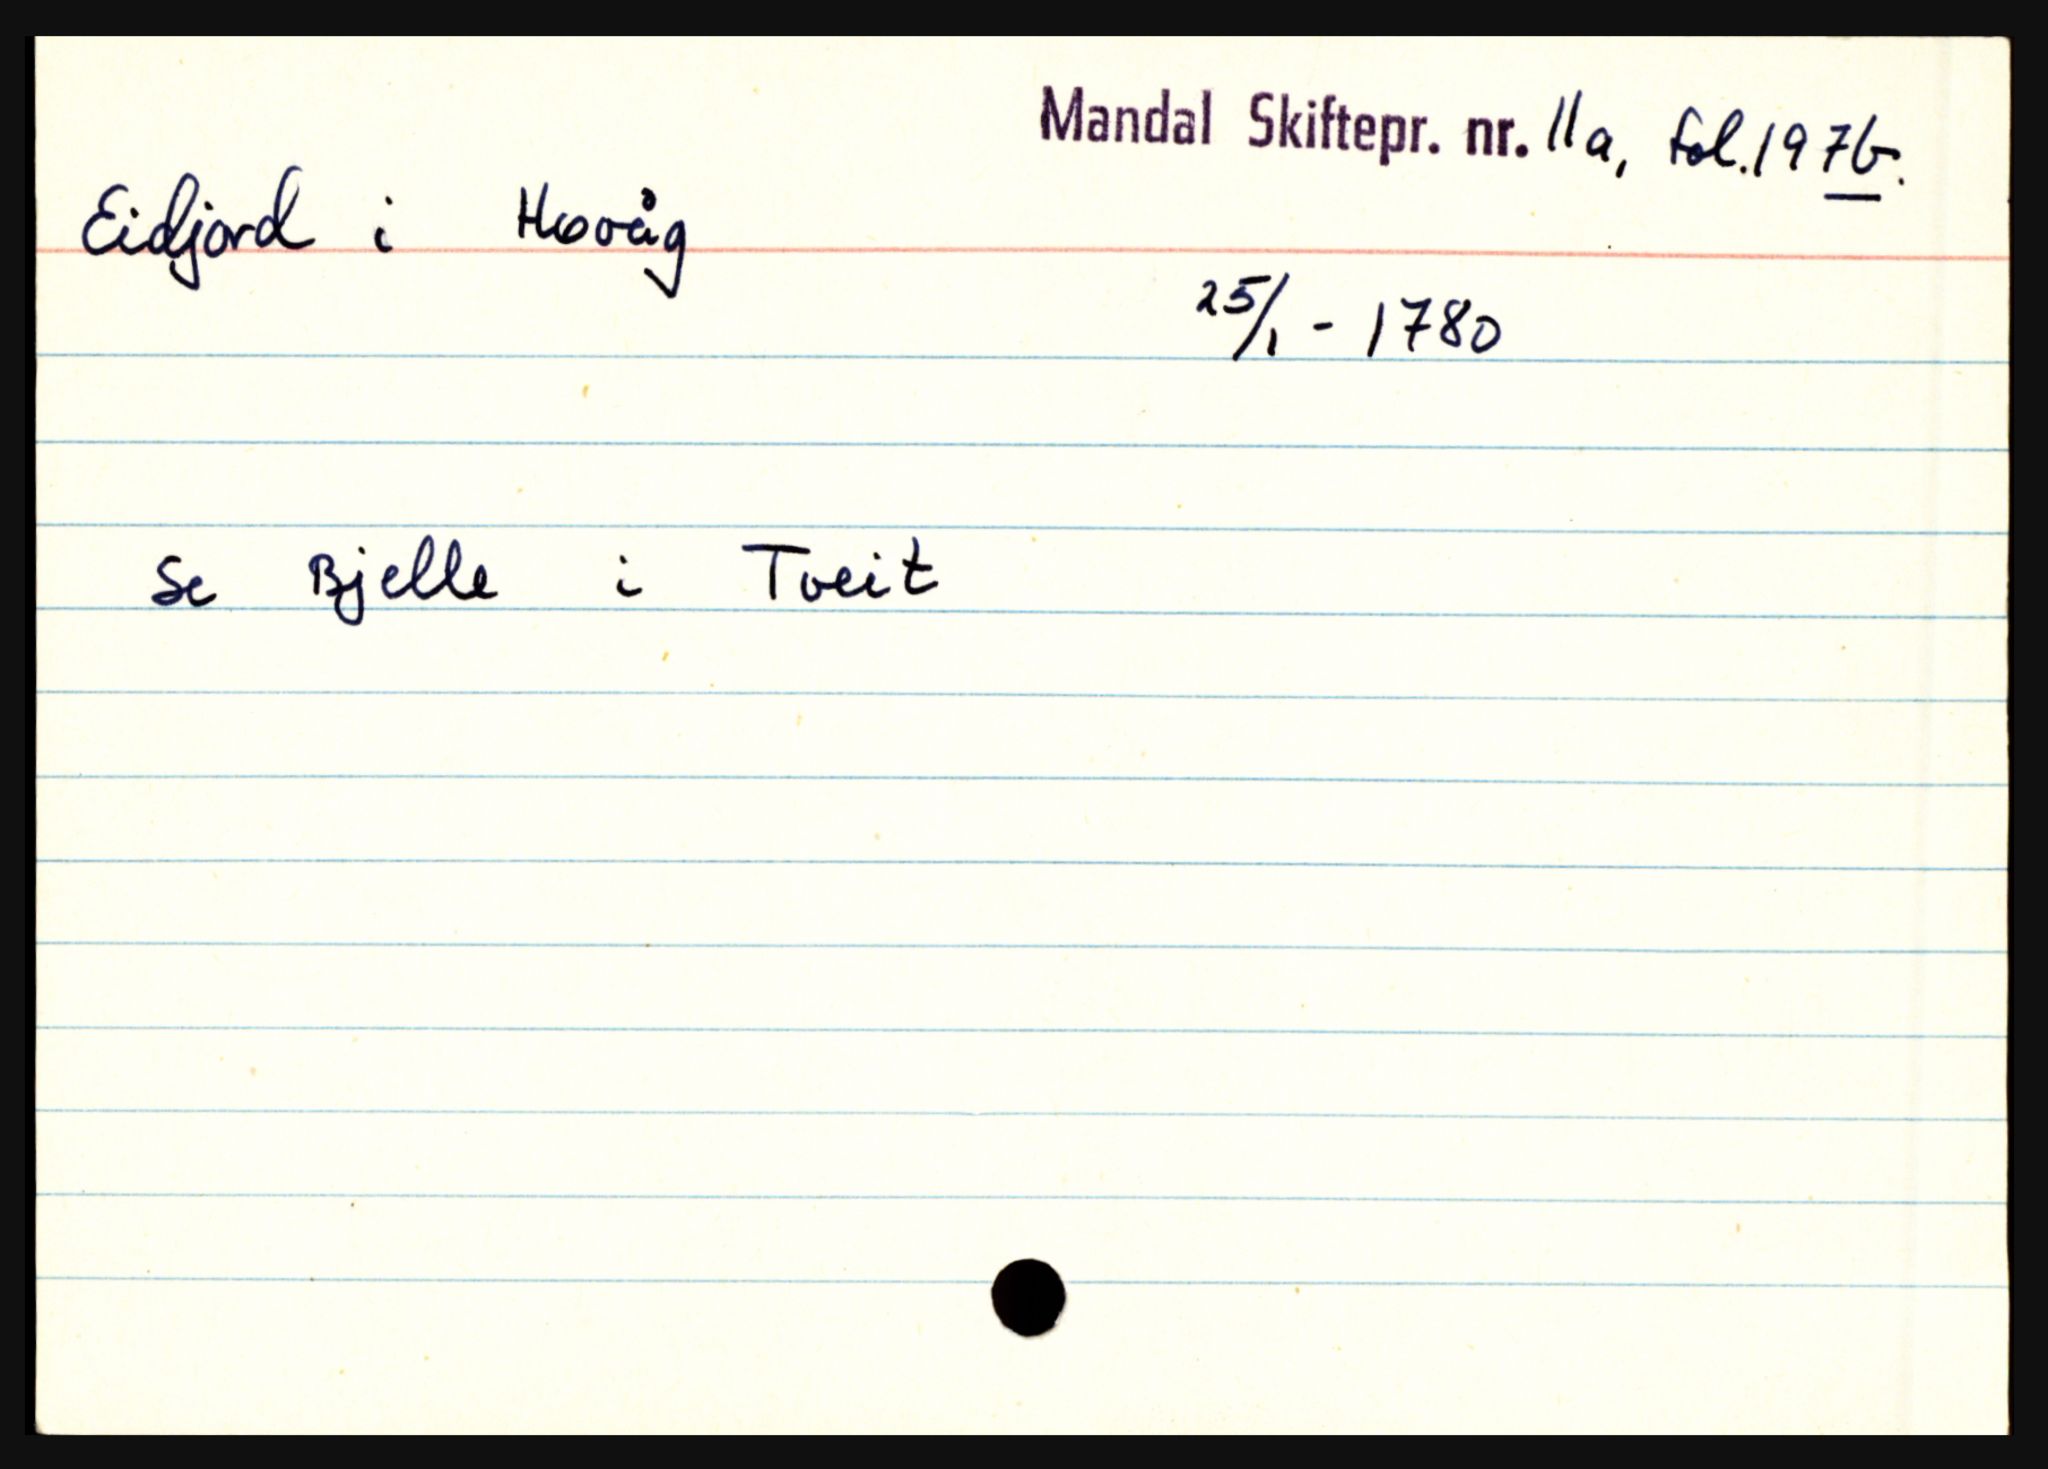 Mandal Skiftepr. nr. 11a, fol. 197b.
Eidjord i Høvåg
25/1 - 1780
Se Bjelle i Tveit